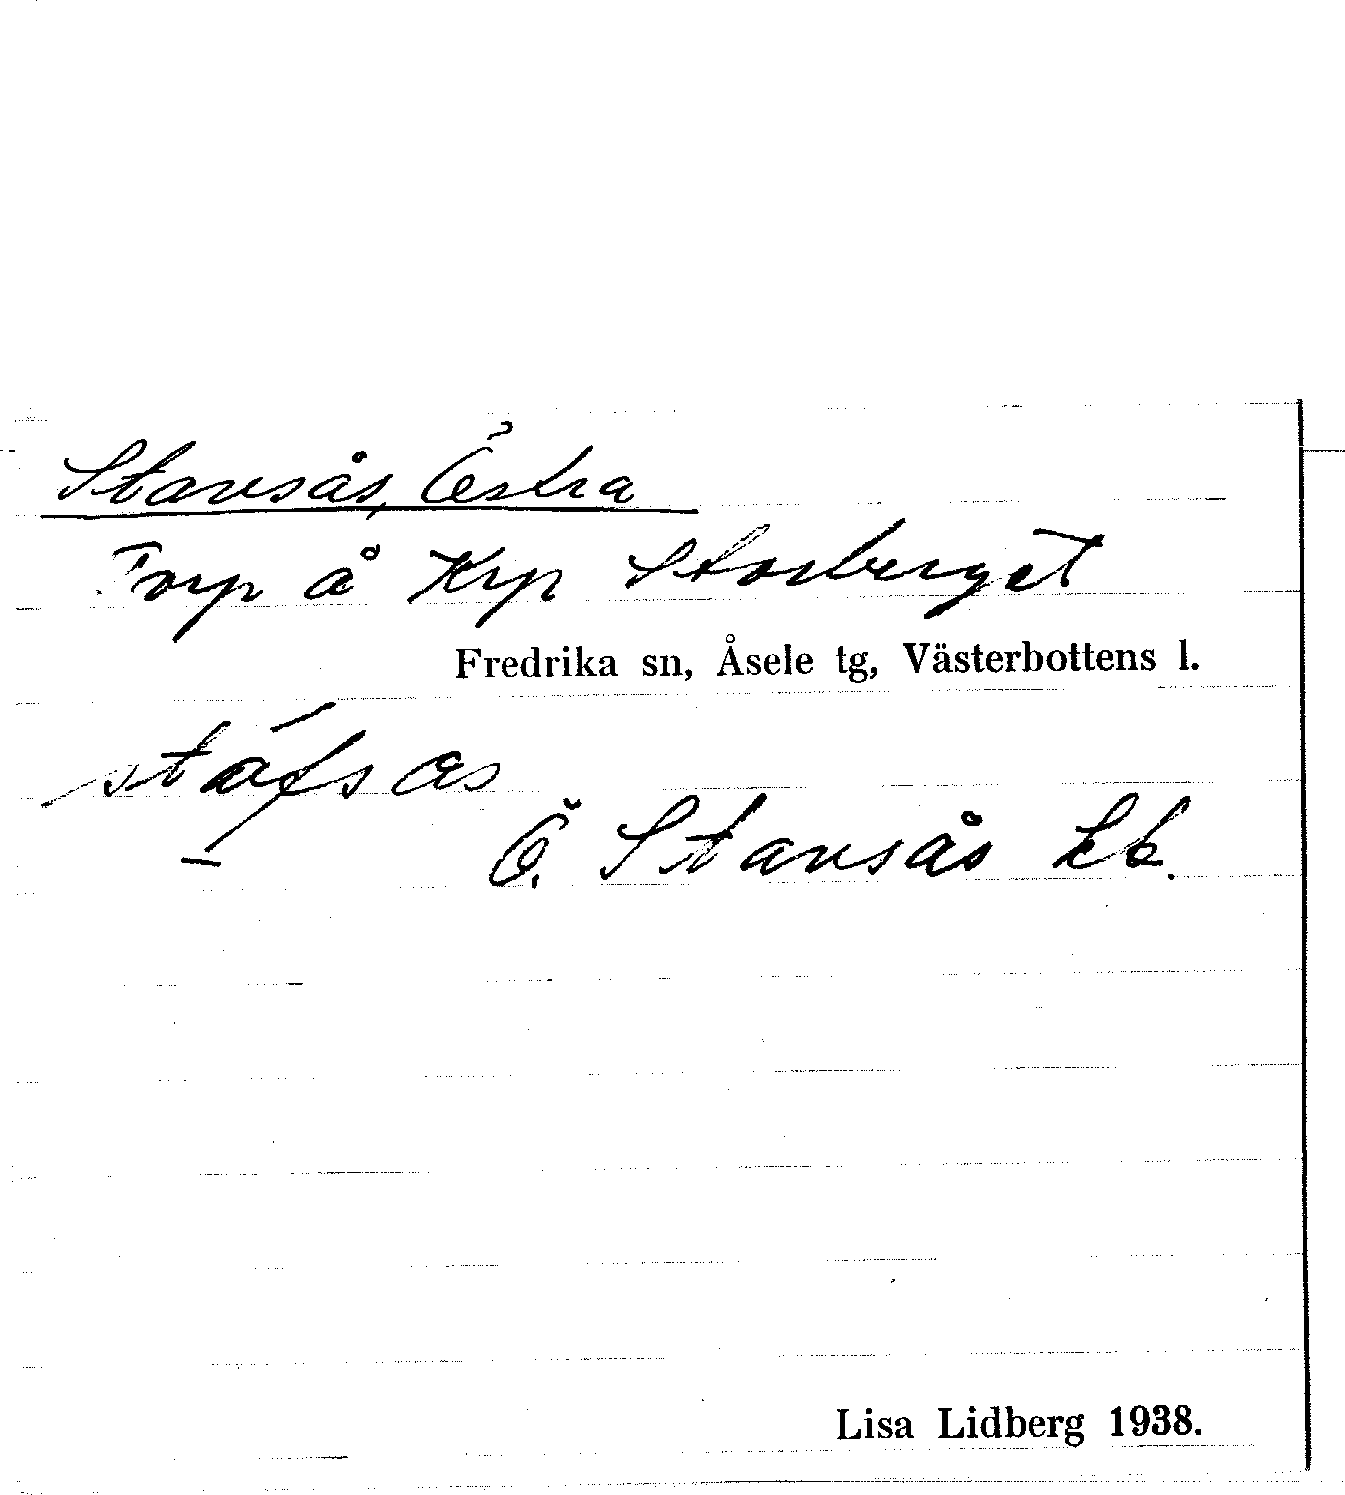 Stavsås, Östra
Torp å Krp Storberget
Fredrika sn, Åsele tg, Västerbottens l.
Ö. Stavsås kb.
Lisa Lidberg 1938.